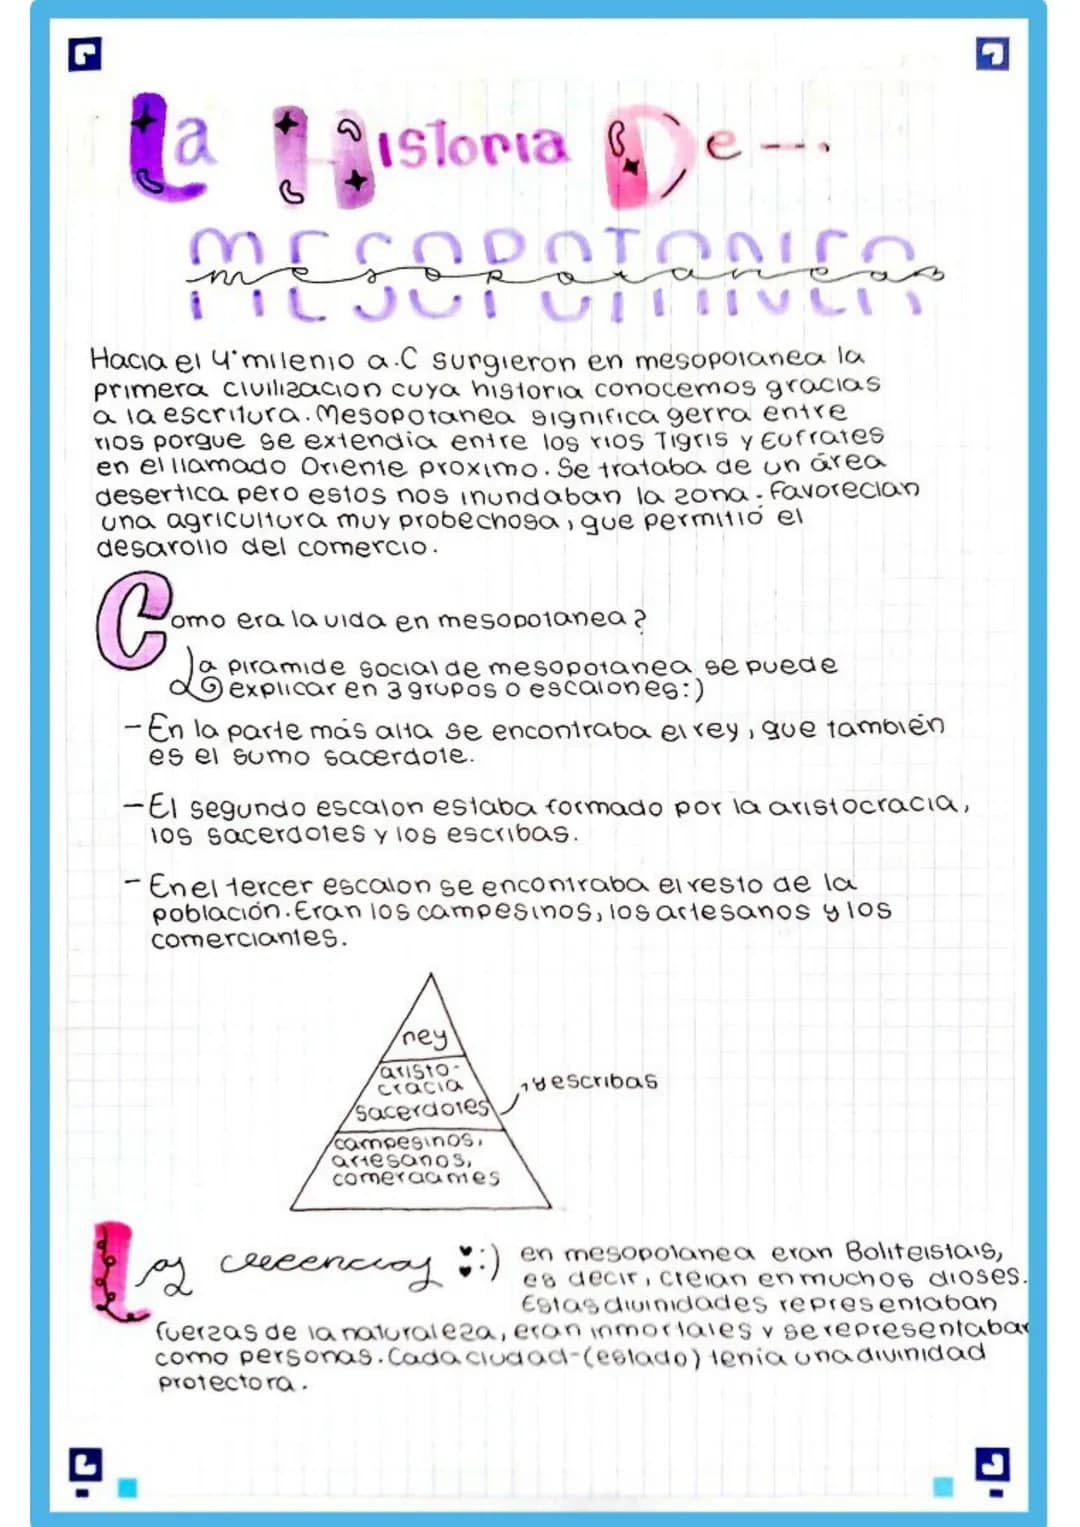 La Historia De---.
mesopotanea
Hacia el 4º milenio a.C surgieron en mesopotanea la
primera civilizacion cuya historia conocemos gracias
a la escritura. Mesopotanea significa gerra entre
rios porque se extendia entre los rios Tigris y Eufrates
en el llamado Oriente proximo. Se trataba de un área
desertica pero estos nos inundaban la zona. Favorecian
una agricultura muy probechosa, que permitió el
desarollo del comercio.
Como era la vida en mesopotanea?
La piramide social de mesopotanea se puede
explicar en 3 grupos o escalones:)
-En la parte más alta se encontraba el rey, que también
es el sumo sacerdote.
-El segundo escalon estaba formado por la aristocracia,
los sacerdotes y los escribas.
-En el tercer escalon se encontraba el resto de la
población. Eran los campesinos, los artesanos y los
comerciantes.
rey
aristo-
cracia
sacerdotes
y escribas
campesinos,
artesanos,
comerciantes
Las creencias :) en mesopotanea eran Boliteistais,
es decir, creian en muchos dioses.
Estas divinidades representaban
fuerzas de la naturaleza, eran inmortales y se representaban
como personas. Cada ciudad-(estado) tenia una divinidad
protectora.